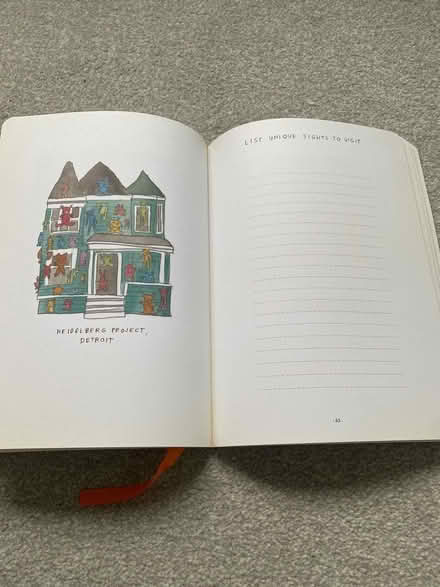 HEIDELBERG PROJECT,
DETROIT
LIST UNIQUE SIGHTS TO VISIT